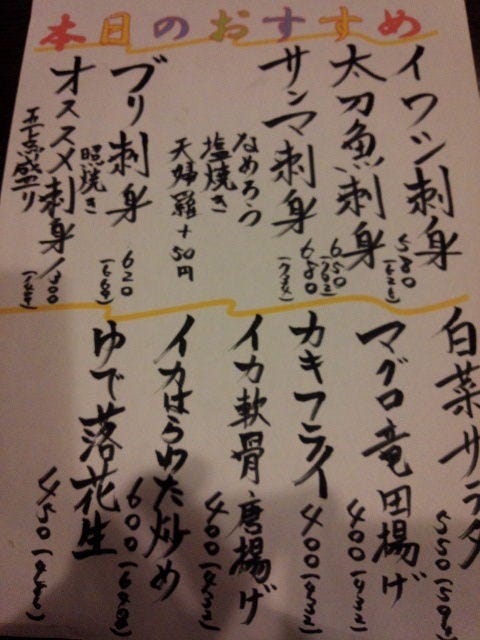 本日のおすすめ
イワシ刺身 580
太刀魚刺身 650
サンマ刺身 680
なめろう
塩焼き
天婦羅+50円
ブリ刺身 620
照焼き
オススメ刺身
五点盛り
白菜サラダ 550
マグロ竜田揚げ 400(432)
カキフライ 400(432)
イカ軟骨唐揚げ 400(432)
イカはらわた炒め 600(648)
ゆで落花生 450